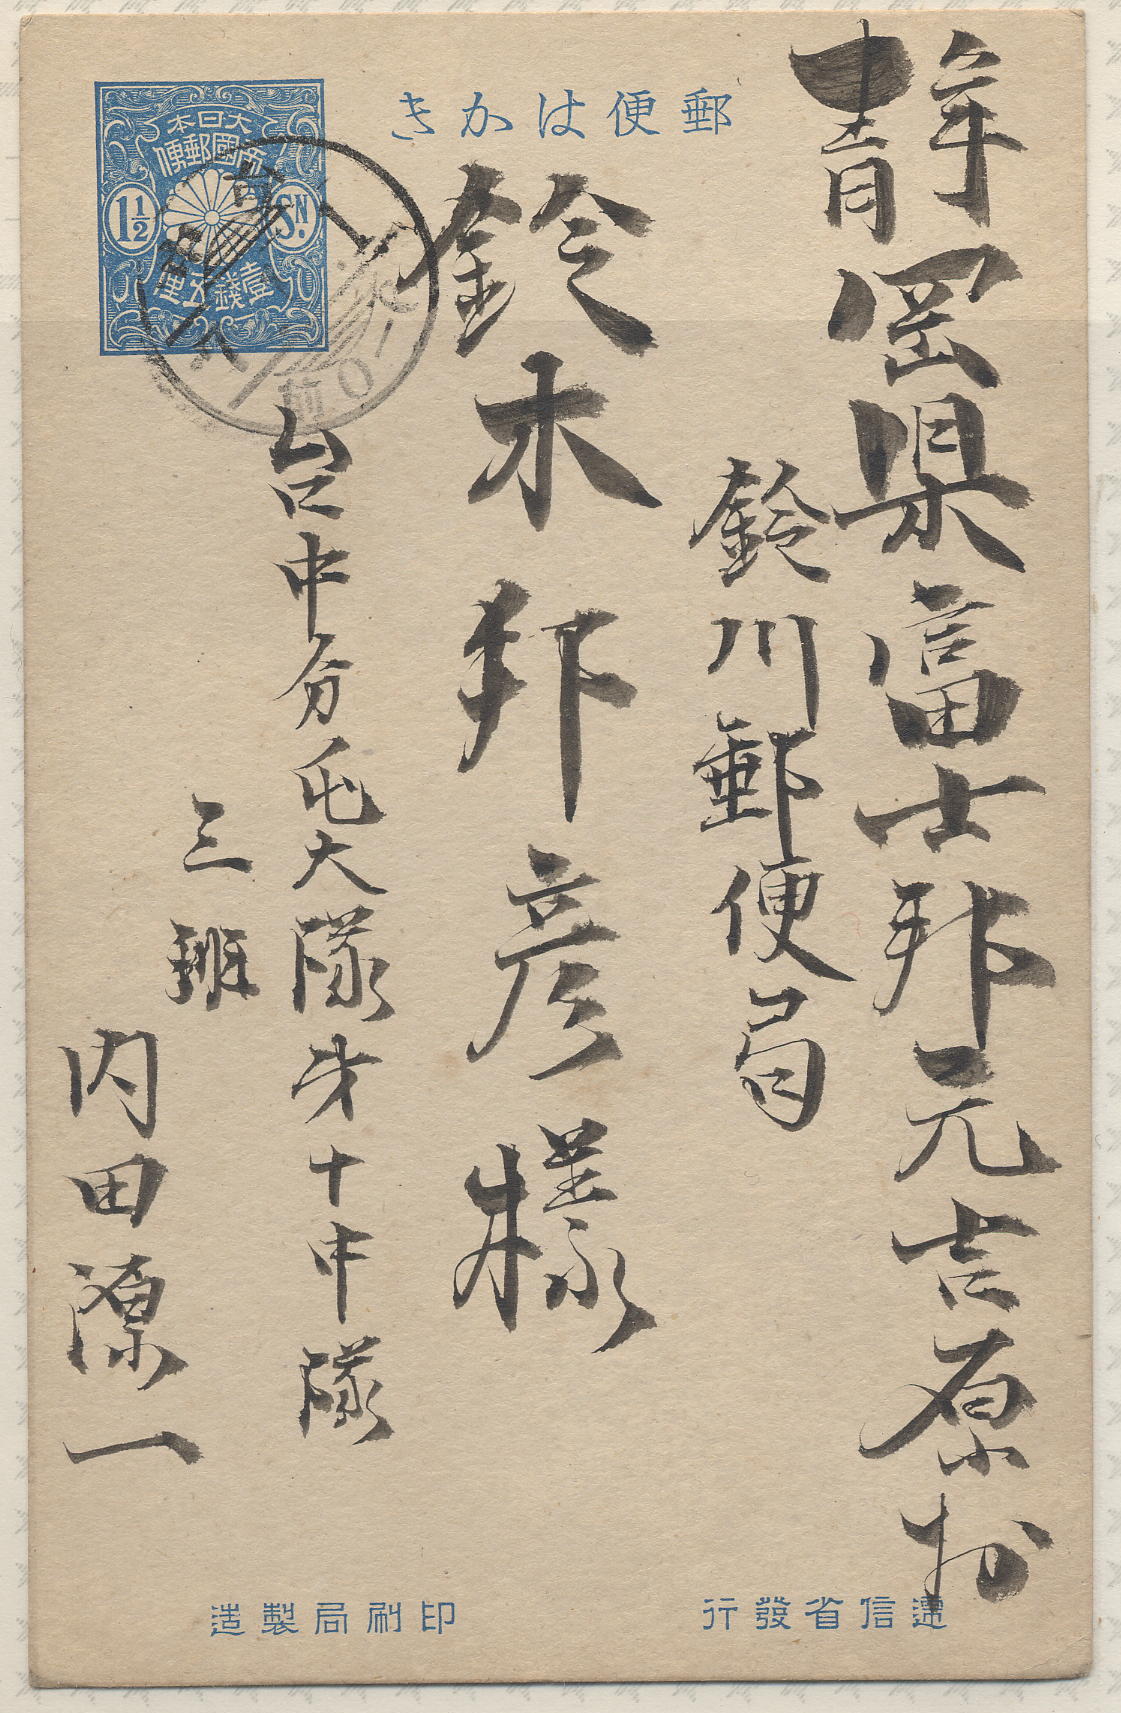 郵便はかき
大日本
帝國郵便
1½ SN.
壹錢五厘
靜岡県富士郡元吉原村
鈴川郵便局
鈴木邦彦様
台中分屯大隊第十中隊
三班
内田源一
遞信省發行
印刷局製造